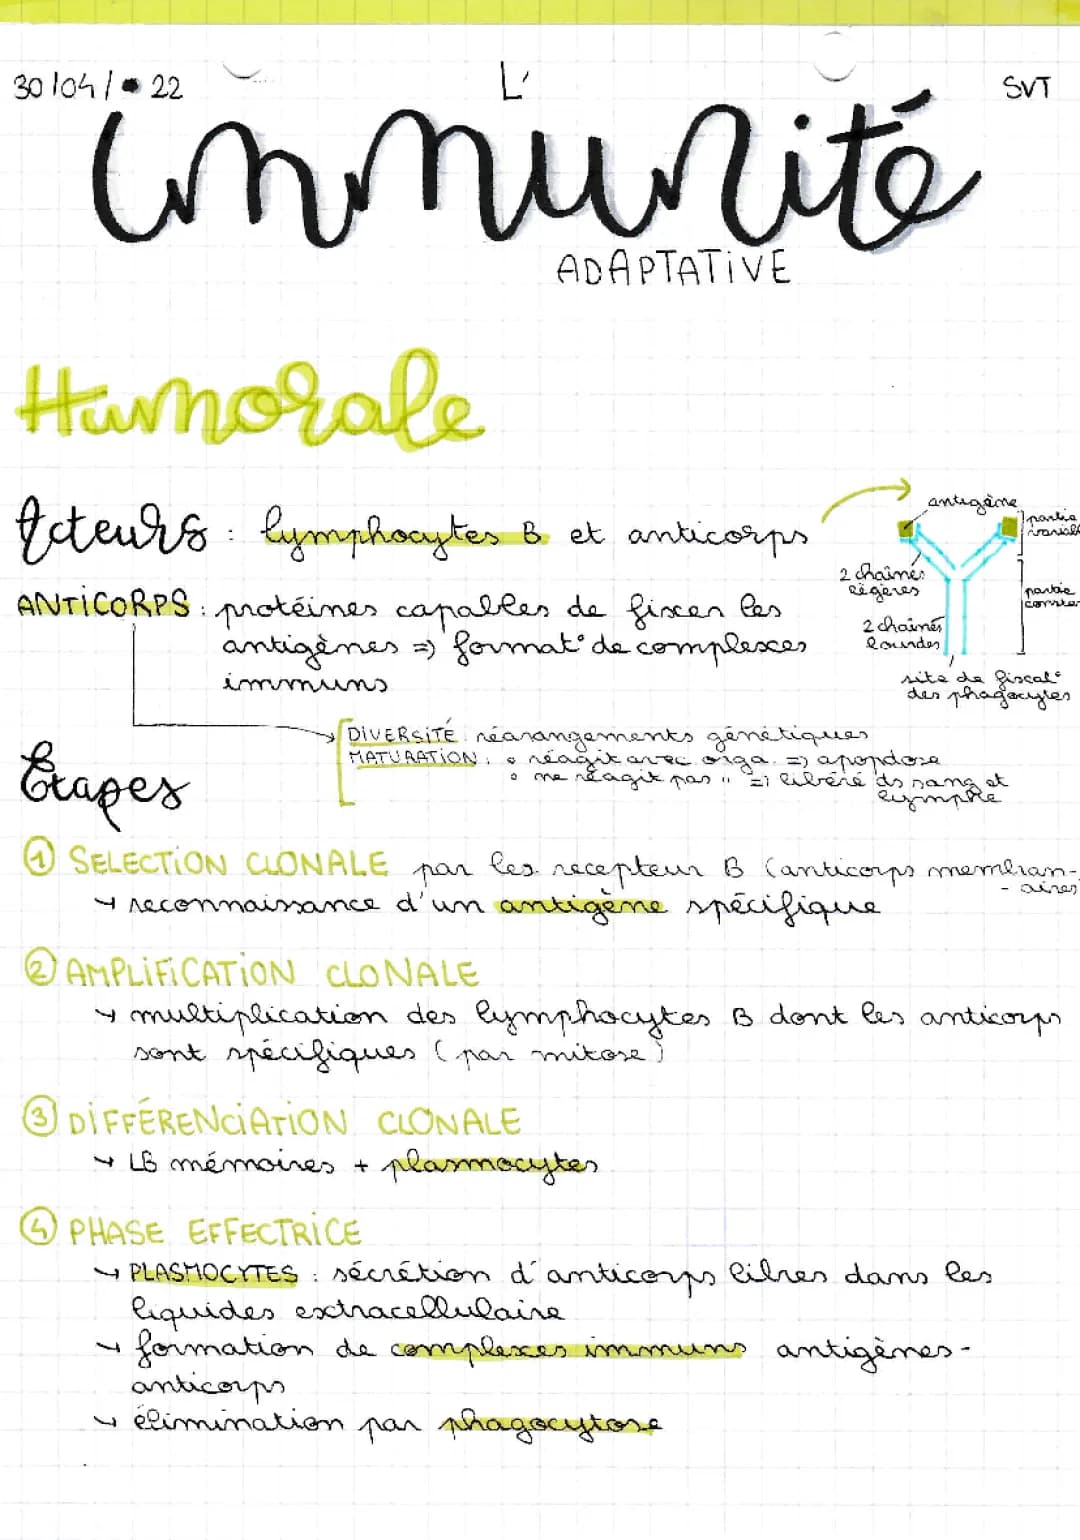 30/04/22
L'
SVT
immunité
ADAPTATIVE
Humorale
Acteurs : lymphocytes B et anticorps
antigène
partie variabl
2 chaînes légères
partie
2 chaînes lourdes
site de fixcat° des phagocytes
ANTICORPS : protéines capables de fixer les
antigènes => format° de complexes
immuns
DIVERSITÉ : réarangements génétiques
MATURATION : • réagit avec orga. => apopdose
• ne réagit pas " => libéré ds sang et
lymphe
Étapes
① SELECTION CLONALE par les recepteur B (anticorps membran-
- aires
↳ reconnaissance d'un antigène spécifique
② AMPLIFICATION CLONALE
↳ multiplication des lymphocytes B dont les anticorps
sont spécifiques (par mitose)
③ DIFFÉRENCIATION CLONALE
↳ LB mémoires + plasmocytes
④ PHASE EFFECTRICE
↳ PLASMOCYTES : sécrétion d'anticorps libres dans les
liquides extracellulaire
↳ formation de complexes immuns antigènes-
anticorps
↳ élimination par phagocytose